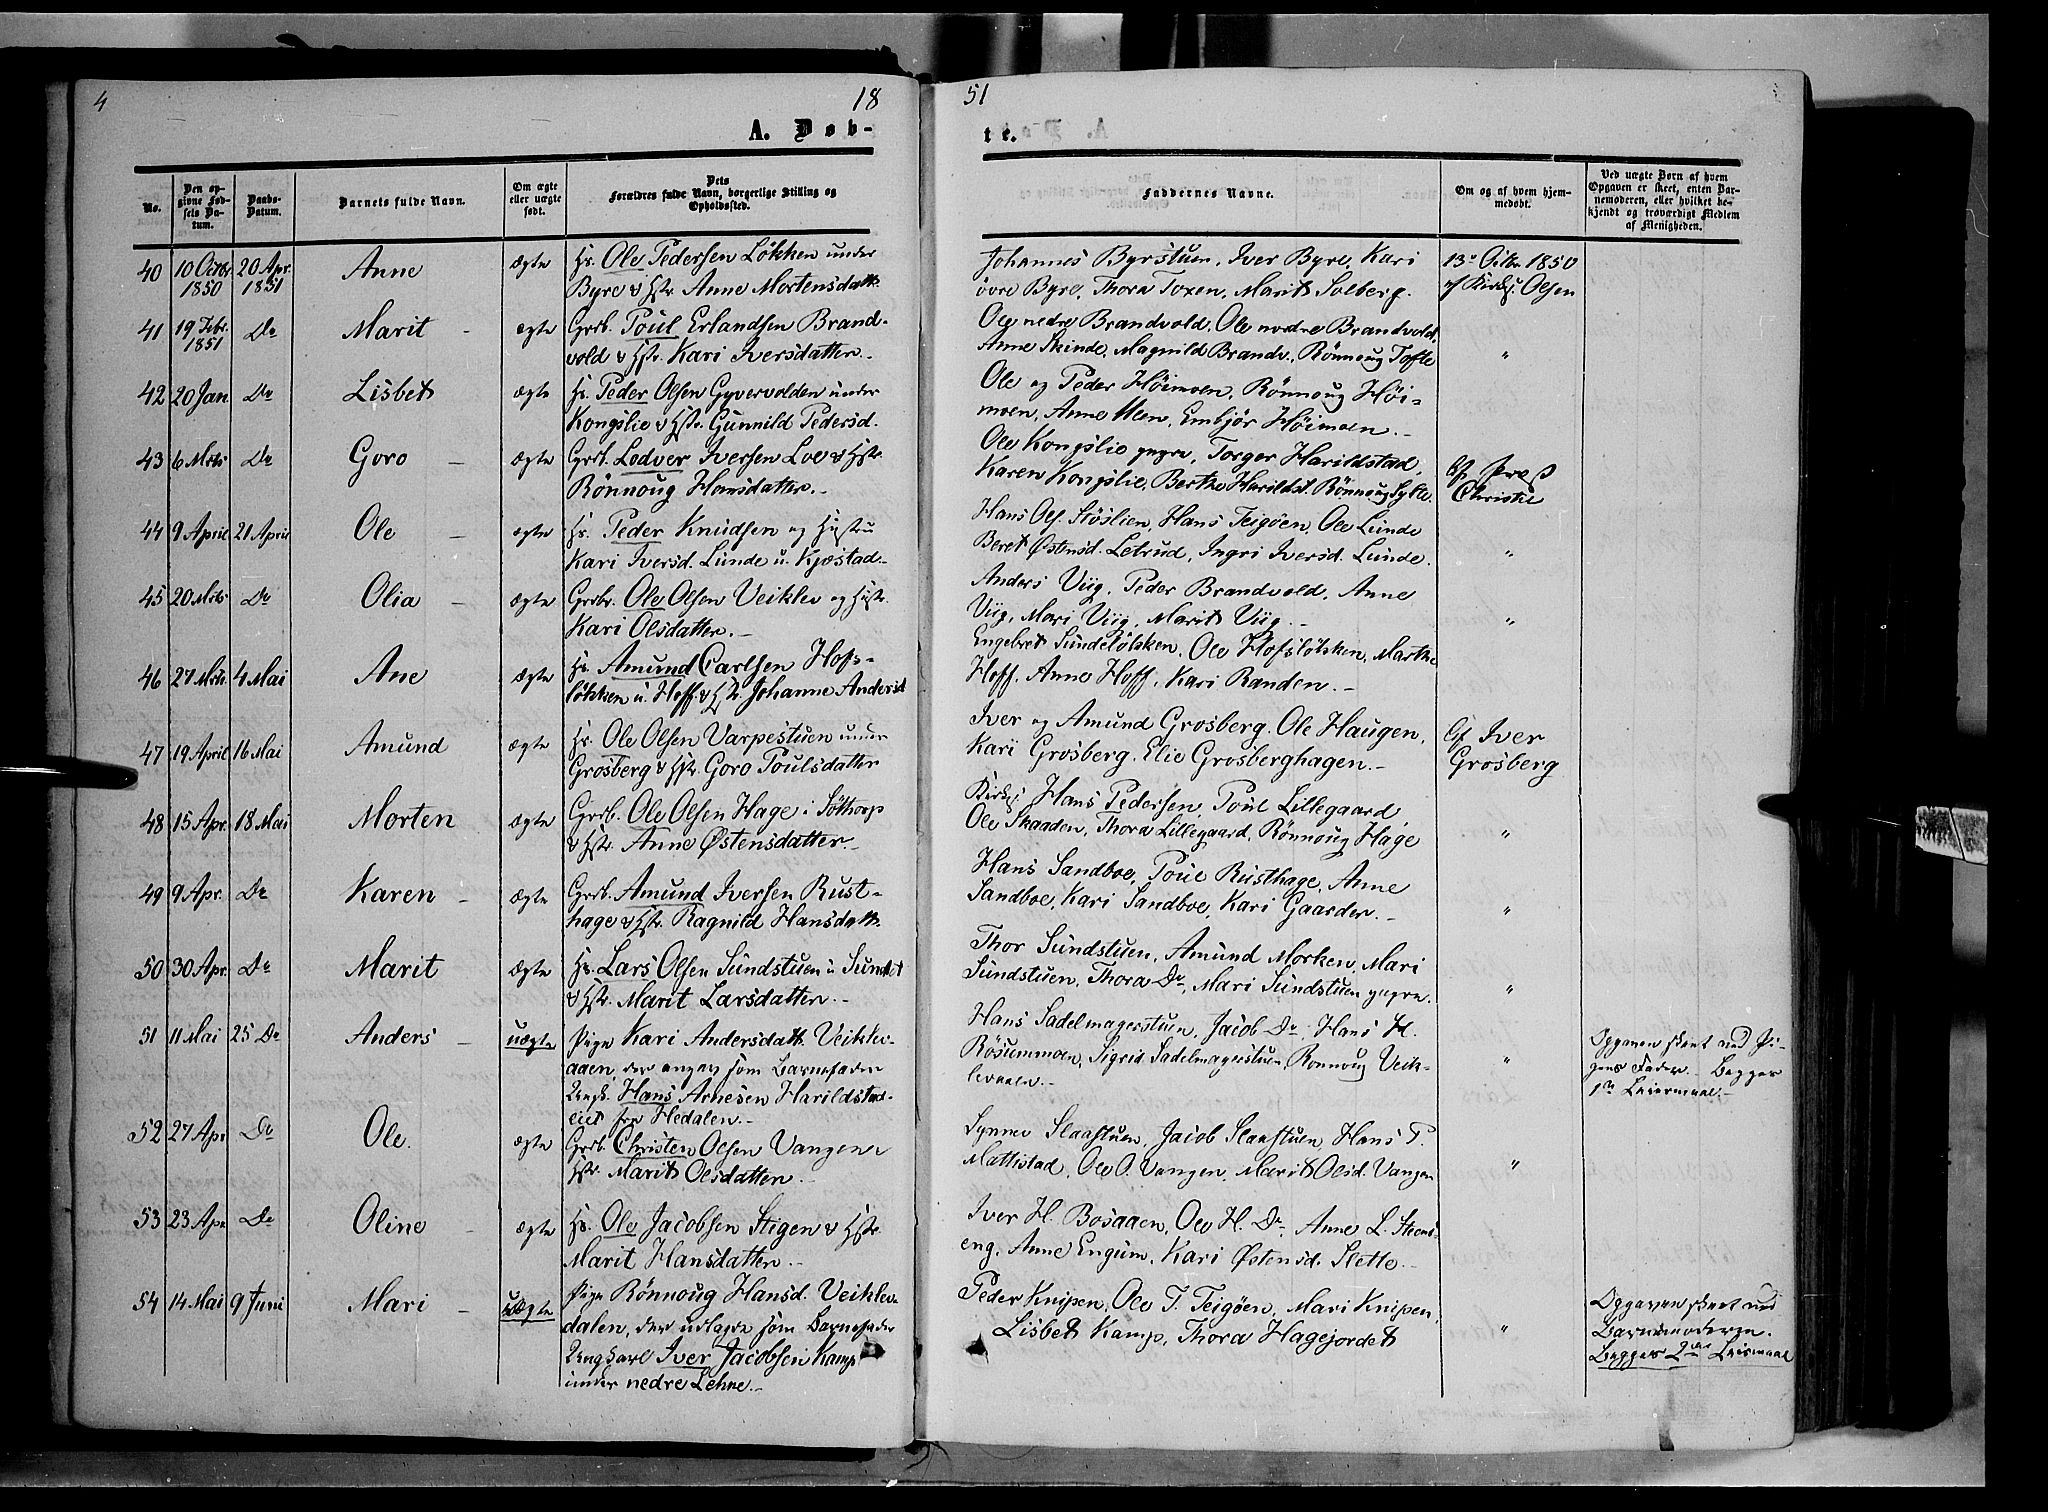 4
18
51
A. Døb-
te.
No.
Den op-
givne Fød-
sels Da-
tum.
Daabs-
Datum.
Barnets fulde Navn.
Om ægte
eller uægte
født.
Dets
Forældres fulde Navn, borgerlige Stilling og
Opholdssted.
Faddernes Navne.
Om og af hvem hjem-
medøbt.
Ved uægte Børn af hvem
Opgaven er skeet, enten Bar-
nemoderen, eller hvilket be-
kjendt og troværdigt Medlem
af Menigheden.
40 10 Octbr 20 Apr. Anne ægte Hs. Ole Pedersen Løkken under
1850 1851 Byre & Hstr Anne Mortensdattr.
Johannes Byrstuen, Iver Byre, Kari
øvre Byre, Thora Toxen, Marit Solberg.
13de Octbr. 1850
af Kirks. Olsen
41 19 Febr. Do Marit - ægte Grdb. Poul Erlandsen Brand-
1851 vold & Hstr. Kari Iversdatter.-
Ole nedre Brandvold, Ole nordre Brandvold,
Anne Skinde, Magnild Brandv., Rönnoug Tofte
"
42 20 Jan Do Lisbet ægte Hs. Peder Olsen Gyvervolden under
Kongslie & Hstr. Gunnild Pedersd.
Ole og Peder Höimoen, Rönnoug Höi-
moen, Anne Moen, Embjör Höimoen.-
43 6 Mrts Do Goro - ægte Grdb. Lodver Iversen Loe & Hstr
Rönnoug Hansdatter.-
Ole Kongslie yngre, Torger Harildstad,
Karen Kongslie, Berthe Harildst. Rönnoug Sylte.
Af Præst
Christie
44 9 April 21 April Ole - ægte Hs. Peder Knudsen og Hustru
Kari Iversd. Lunde u. Kjæstad.-
Hans Ols. Stöslien, Hans Teigöen, Ole Lunde
Beret Østensd. Letrud, Ingri Iversd. Lunde.
"
45 20 Mrts Do Olia - ægte Grdbr. Ole Olsen Veiklev og Hustr.
Kari Olsdatter.-
Anders Viig, Peder Brandvold, Anne
Viig, Mari Viig, Marit Viig.-
"
46 27 Mrts. 4 Mai Ane ægte Hs. Amund Carlsen Hofs-
løkken u. Hoff & Hstr. Johanne Andersd
Engebret Sundeløkken, Ole Hofsløkken, Marthe
Hoff, Anne Hoff, Kari Randen.-
47 19 April 16 Mai Amund ægte Hs. Ole Olsen Varpestuen under
Grosberg & Hstr. Goro Poulsdatter
Iver og Amund Grosberg, Ole Haugen,
Kari Grosberg, Elie Grosberghagen.-
Af Iver
Grosberg
48 15 Apr. 18 Mai Morten ægte Grdb. Ole Olsen Hage i Söttorp
& Hstr. Anne Østensdatter.-
Kirks. Hans Pedersen, Poul Lillegaard
Ole Skaaden, Thora Lillegaard, Rönnoug Hage
"
49 9 Apr. Do Karen - ægte Grdb. Amund Iversen Rust-
hage & Hstr. Ragnild Hansdattr.
Hans Sandboe, Poul Rusthage, Anne
Sandboe, Kari Sandboe, Kari Gaarder.-
"
50 30 Apr. Do Marit ægte Hs. Lars Olsen Sundstuen u Sundet
& Hstr. Marit Larsdatter.-
Thor Sundstuen, Amund Morken, Mari
Sundstuen, Thora Do, Mari Sundstuen yngre.
"
51 11 Mai 25 Do Anders - uægte Pige Kari Andersdattr. Veiklev-
aaen, der angav som Barnefader
Ungk. Hans Arnesen Harildstad-
eiet fra Hedalen.-
Hans Sadelmagerstuen, Jacob Do, Hans H.
Rösummoen, Sigrid Sadelmagerstuen, Ronnoug Veik-
levaaen.-
"
Opgaven skeet ved Pi-
gens Fader.- Begges
1ste Leiermaal.-
52 27 Apr Do Ole. ægte Grdb. Christen Olsen Vangen &
Hstr. Marit Olsdatter.-
Synnev Slaastuen, Jacob Slaastuen, Hans P.
Mattistad, Ole O. Vangen, Marit Olsd. Vangen
"
53 23 Apr Do Oline - ægte Hs. Ole Jacobsen Stigen & Hstr.
Marit Hansdatter.-
Iver H. Bosaaen, Ole H. Do, Anne L. Steens-
eng, Anne Engum, Kari Østensd. Slette.-
54 14 Mai 9 Juni Mari - uægte Pige Rönnoug Hansd. Veiklev-
dalen, der udlagde som Barnefader
Ungkarl Iver Jacobsen Kamp
under nedre Lehne.-
Peder Knipen, Ole T. Teigöen, Mari Knipen,
Lisbet Kamp, Thora Hagejordet
"
Opgaven skeet ved
Barnemoderen.
Begges 2det Leiermaal